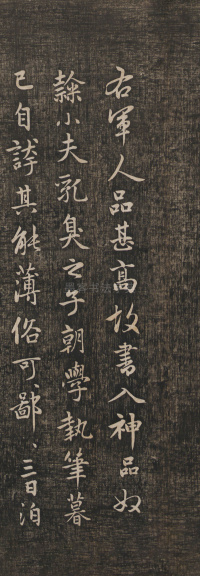 右軍人品甚高故書入神品奴
隸小夫乳臭之子朝學執筆暮
已自誇其能薄俗可鄙、三日泊